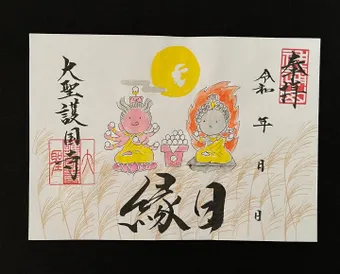 奉拝
令和　年　月　日
縁日
大聖護国寺